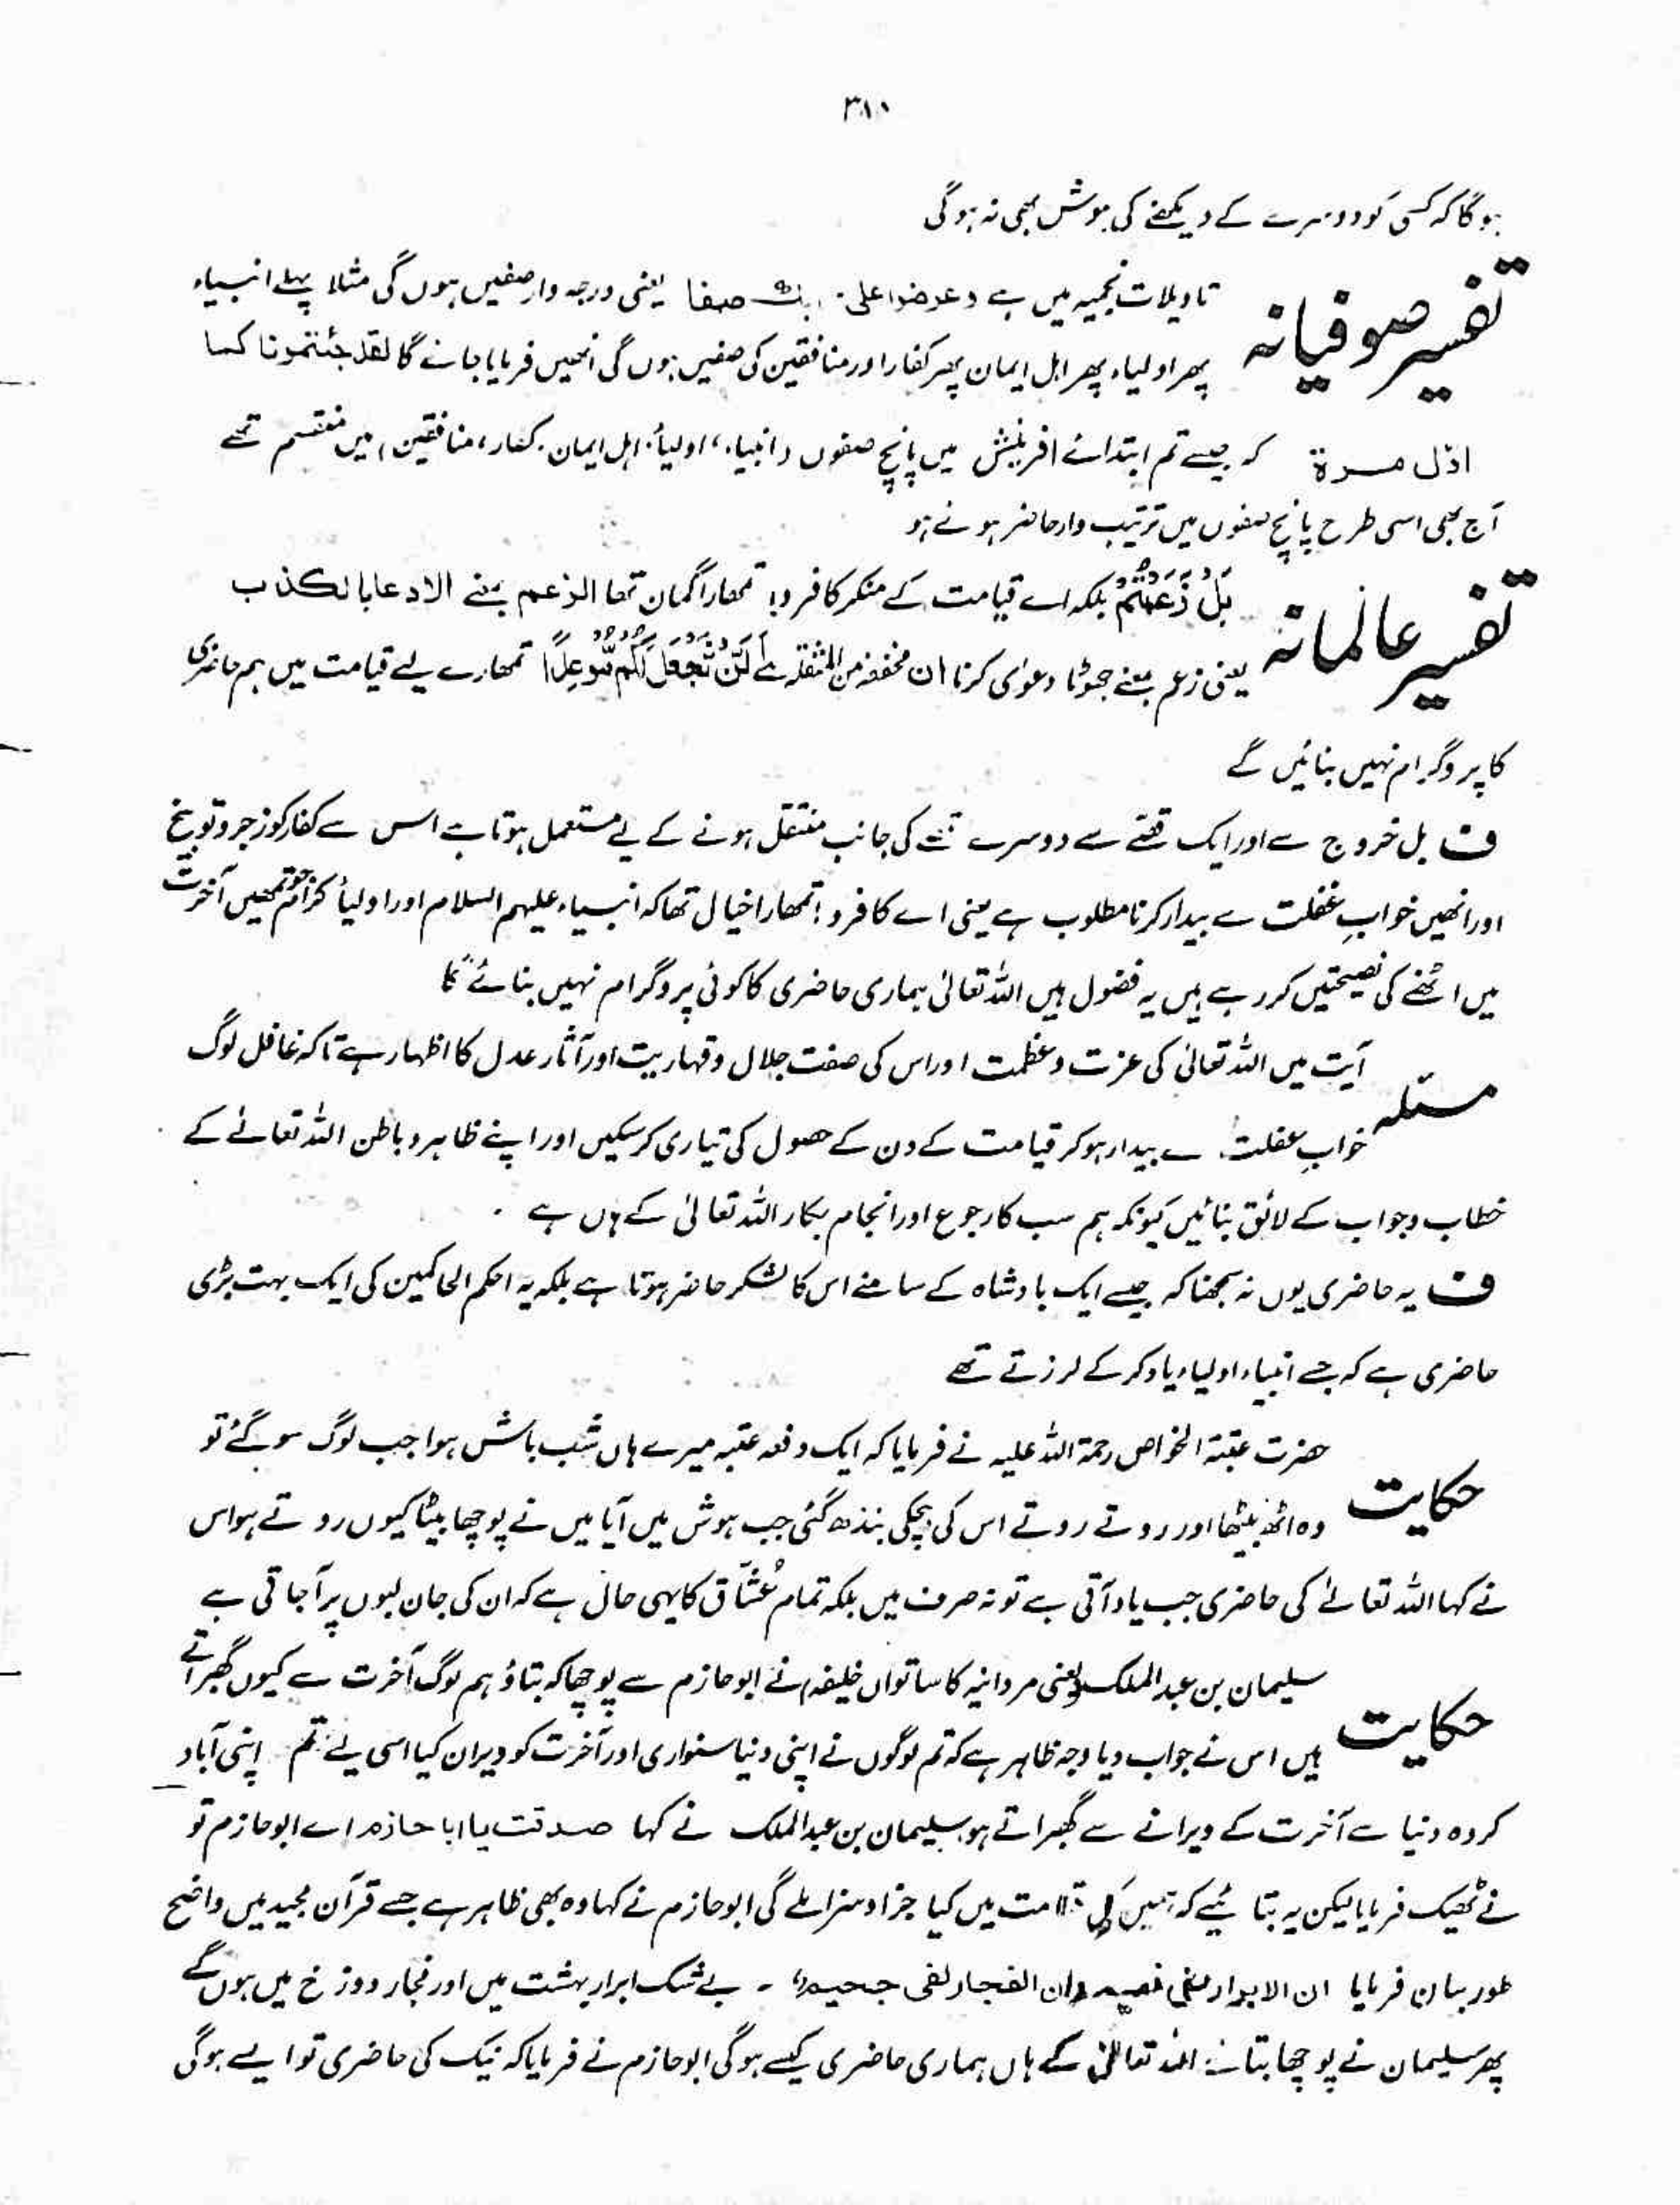 ۳۱۰
ہوگا کہ کسی کو دوسرے کے دیکھنے کی ہوش بھی نہ ہوگی
تفسیر صوفیانہ
تاویلات نجمیہ میں ہے وعرضوا علی ربک صفا یعنی درجہ وار صفیں ہوں گی مثلا پہلے انبیاء
پھر اولیاء پھر اہل ایمان پھر کفار اور منافقین کی صفیں ہوں گی انھیں فرمایا جائے گا لقد جئتمونا کما
اوّل مرة کہ جیسے تم ابتدائے افرینش میں پانچ صفوں (انبیاء، اولیاء، اہل ایمان، کفار، منافقین) میں منقسم تھے
آج بھی اسی طرح پانچ صفوں میں ترتیب وار حاضر ہوئے ہو
تفسیر عالمانہ
بَلْ زَعَمْتُمْ بلکہ اے قیامت کے منکر کافرو! تمھارا گمان تھا الزعم بمعنے الادعا بالکذب
یعنی زعم بمعنے جھوٹا دعوٰی کرنا ان مخففہ من المثقلہ ہے أَلَّنْ نَّجْعَلَ لَكُمْ مَّوْعِدًا تمھارے لیے قیامت میں ہم حاضری
کا پروگرام نہیں بنائیں گے
ف بل خروج سے اور ایک قصّے سے دوسرے کی جانب منتقل ہونے کے لیے مستعمل ہوتا ہے اس سے کفار کو زجر و توبیخ
اور انھیں خوابِ غفلت سے بیدار کرنا مطلوب ہے یعنی اے کافرو! تمھارا خیال تھا کہ انبیاء علیہم السلام اور اولیاء کرام جو تمھیں آخرت
میں اٹھنے کی نصیحتیں کر رہے ہیں یہ فضول ہیں اللہ تعالیٰ ہماری حاضری کا کوئی پروگرام نہیں بنائے گا
مسئلہ
آیت میں اللہ تعالیٰ کی عزت و عظمت اور اس کی صفت جلال و قہاریت اور آثار عدل کا اظہار ہے تاکہ غافل لوگ
خوابِ غفلت سے بیدار ہو کر قیامت کے دن کے حصول کی تیاری کر سکیں اور اپنے ظاہر و باطن اللہ تعالےٰ کے
خطاب و جواب کے لائق بنائیں کیونکہ ہم سب کا رجوع اور انجام بکار اللہ تعالیٰ کے ہاں ہے ۔
ف یہ حاضری یوں نہ سمجھنا کہ جیسے ایک بادشاہ کے سامنے اس کا لشکر حاضر ہوتا ہے بلکہ یہ احکم الحاکمین کی ایک بہت بڑی
حاضری ہے کہ جسے انبیاء اولیاء یاد کر کے لرزتے تھے
حکایت
حضرت عتبۃ الخواص رحمۃ اللہ علیہ نے فرمایا کہ ایک دفعہ عتبہ میرے ہاں شب باش ہوا جب لوگ سو گئے تو
وہ اٹھ بیٹھا اور روتے روتے اس کی ہچکی بندھ گئی جب ہوش میں آیا میں نے پوچھا بیٹا کیوں روتے ہو اس
نے کہا اللہ تعالےٰ کی حاضری جب یاد آتی ہے تو نہ صرف میں بلکہ تمام عُشّاق کا یہی حال ہے کہ ان کی جان لبوں پر آجاتی ہے
حکایت
سلیمان بن عبد الملک (یعنی مروانیہ کا ساتواں خلیفہ) نے ابو حازم سے پوچھا کہ بتاؤ ہم لوگ آخرت سے کیوں گھبراتے
ہیں اس نے جواب دیا وجہ ظاہر ہے کہ تم لوگوں نے اپنی دنیا سنواری اور آخرت کو ویران کیا اسی لیے تم اپنی آباد
کردہ دنیا سے آخرت کے ویرانے سے گھبراتے ہو سلیمان بن عبد الملک نے کہا صدقت یا ابا حازم اے ابو حازم تو
نے ٹھیک فرمایا لیکن یہ بتا ئیے کہ ہمیں کل قیامت میں کیا جزا و سزا ملے گی ابو حازم نے کہا وہ بھی ظاہر ہے جسے قرآن مجید میں واضح
طور بیان فرمایا ان الابرار لفی نعیم وان الفجار لفی جحیم ۔ بے شک ابرار بہشت میں اور فجار دوزخ میں ہوں گے
پھر سلیمان نے پوچھا اللہ تعالیٰ کے ہاں ہماری حاضری کیسے ہوگی ابو حازم نے فرمایا کہ نیک کی حاضری تو ایسے ہوگی